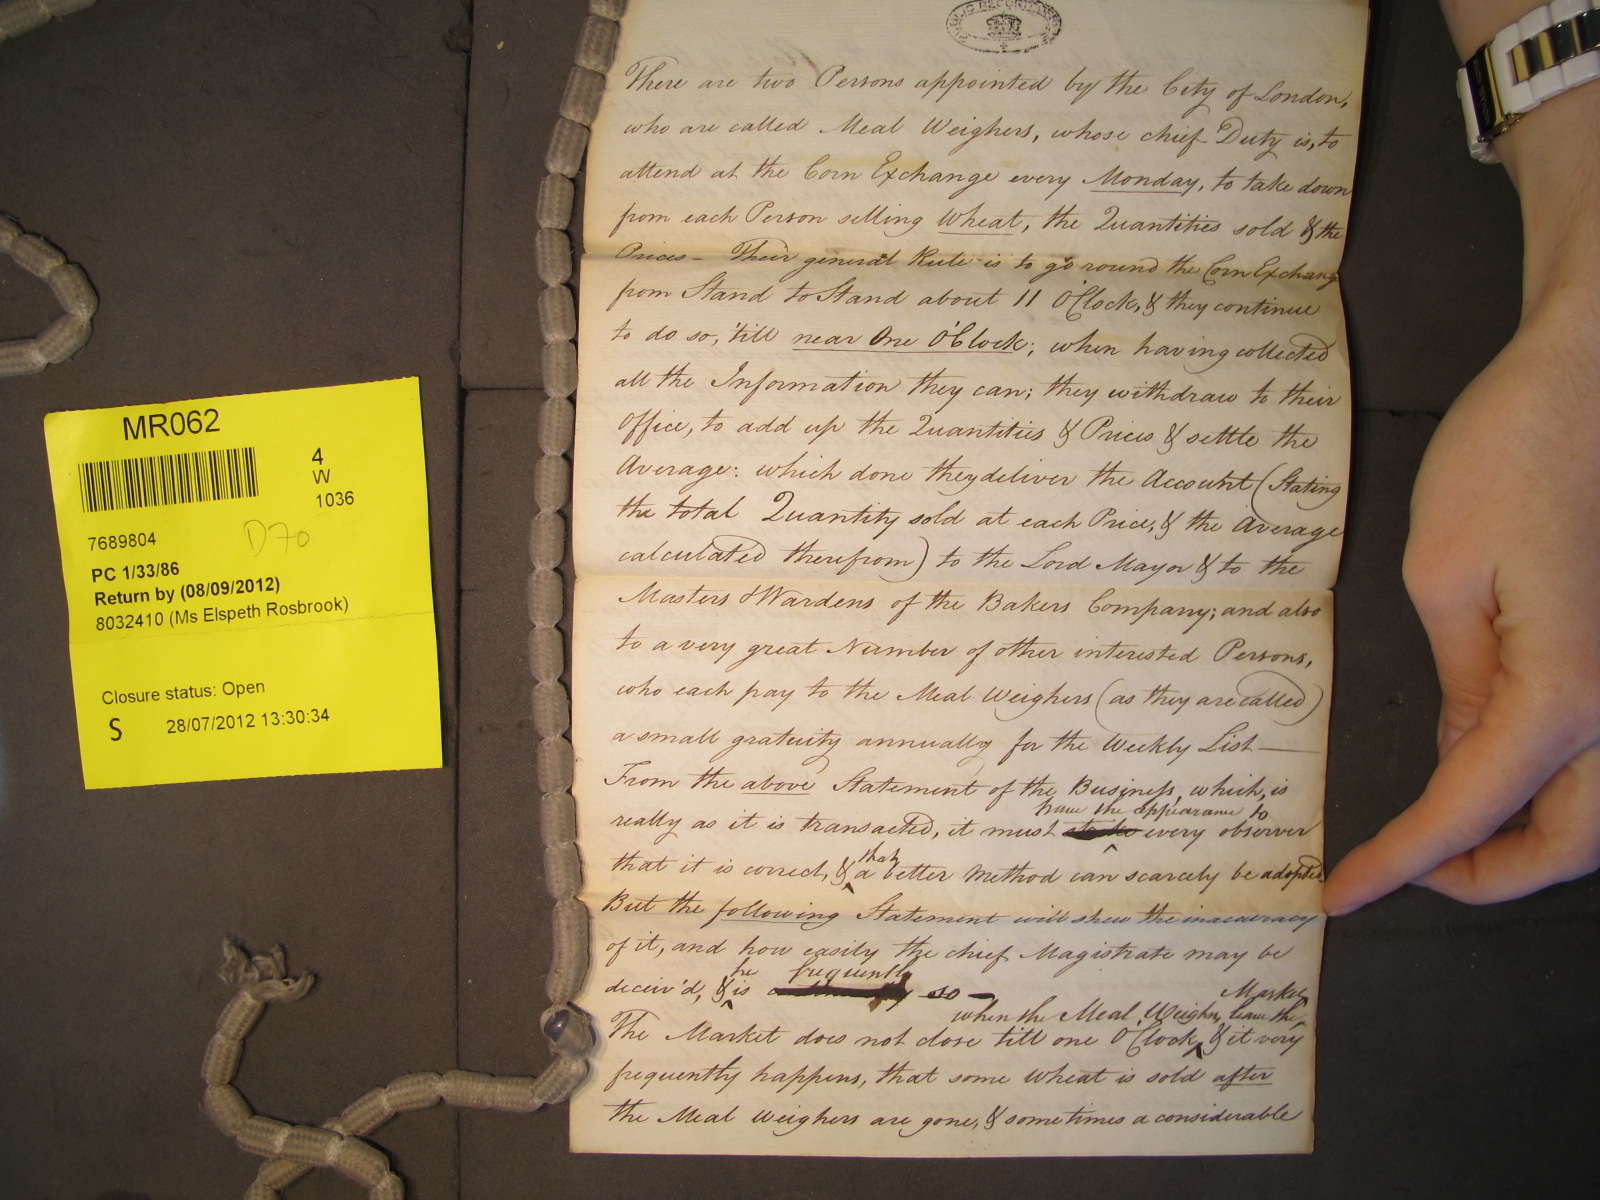 PUBLIC RECORD OFFICE
There are two Persons appointed by the City of London,
who are called Meal Weighers, whose chief Duty is, to
attend at the Corn Exchange every Monday, to take down
from each Person selling Wheat, the Quantities sold & the
Prices — Their general Rule is to go round the Corn Exchange
from Stand to Stand about 11 O'Clock, & they continue
to do so, 'till near One O'Clock; when having collected
all the Information they can; they withdraw to their
Office, to add up the Quantities & Prices & settle the
Average: which done they deliver the Account (Stating
the total Quantity sold at each Price, & the Average
calculated therefrom) to the Lord Mayor & to the
Masters & Wardens of the Bakers Company; and also
to a very great Number of other interested Persons,
who each pay to the Meal Weighers (as they are called)
a small gratuity annually for the Weekly List —
From the above Statement of the Business, which, is
have the appearance to
really as it is transacted, it must strike every observer
that
that it is correct, & a better Method can scarcely be adopted
But the following Statement will shew the inaccuracy
of it, and how easily the chief Magistrate may be
he frequently
deceiv'd, & is so —
when the Meal Weighers leave the Market
The Market does not close till one O'Clock, & it very
frequently happens, that some Wheat is sold after
the Meal Weighers are gone, & sometimes a considerable
MR062
4
W
1036
7689804
D70
PC 1/33/86
Return by (08/09/2012)
8032410 (Ms Elspeth Rosbrook)
Closure status: Open
S 28/07/2012 13:30:34